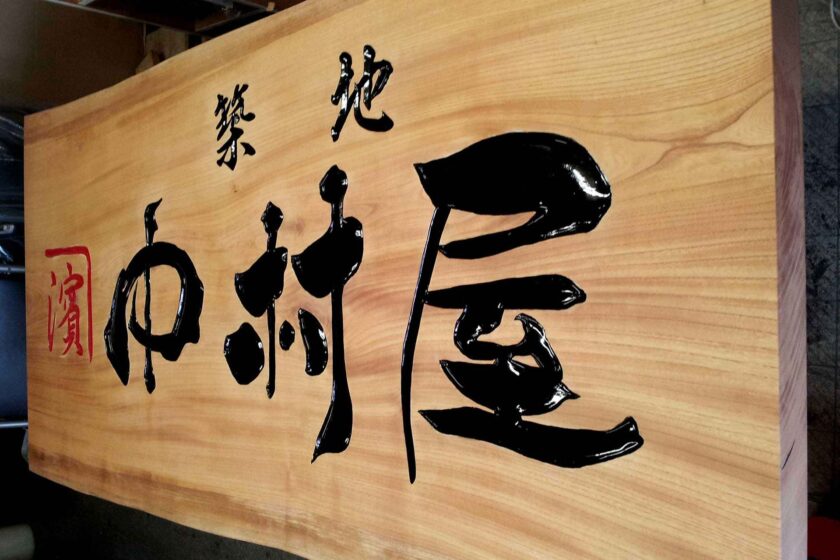 築地
濱
中村屋